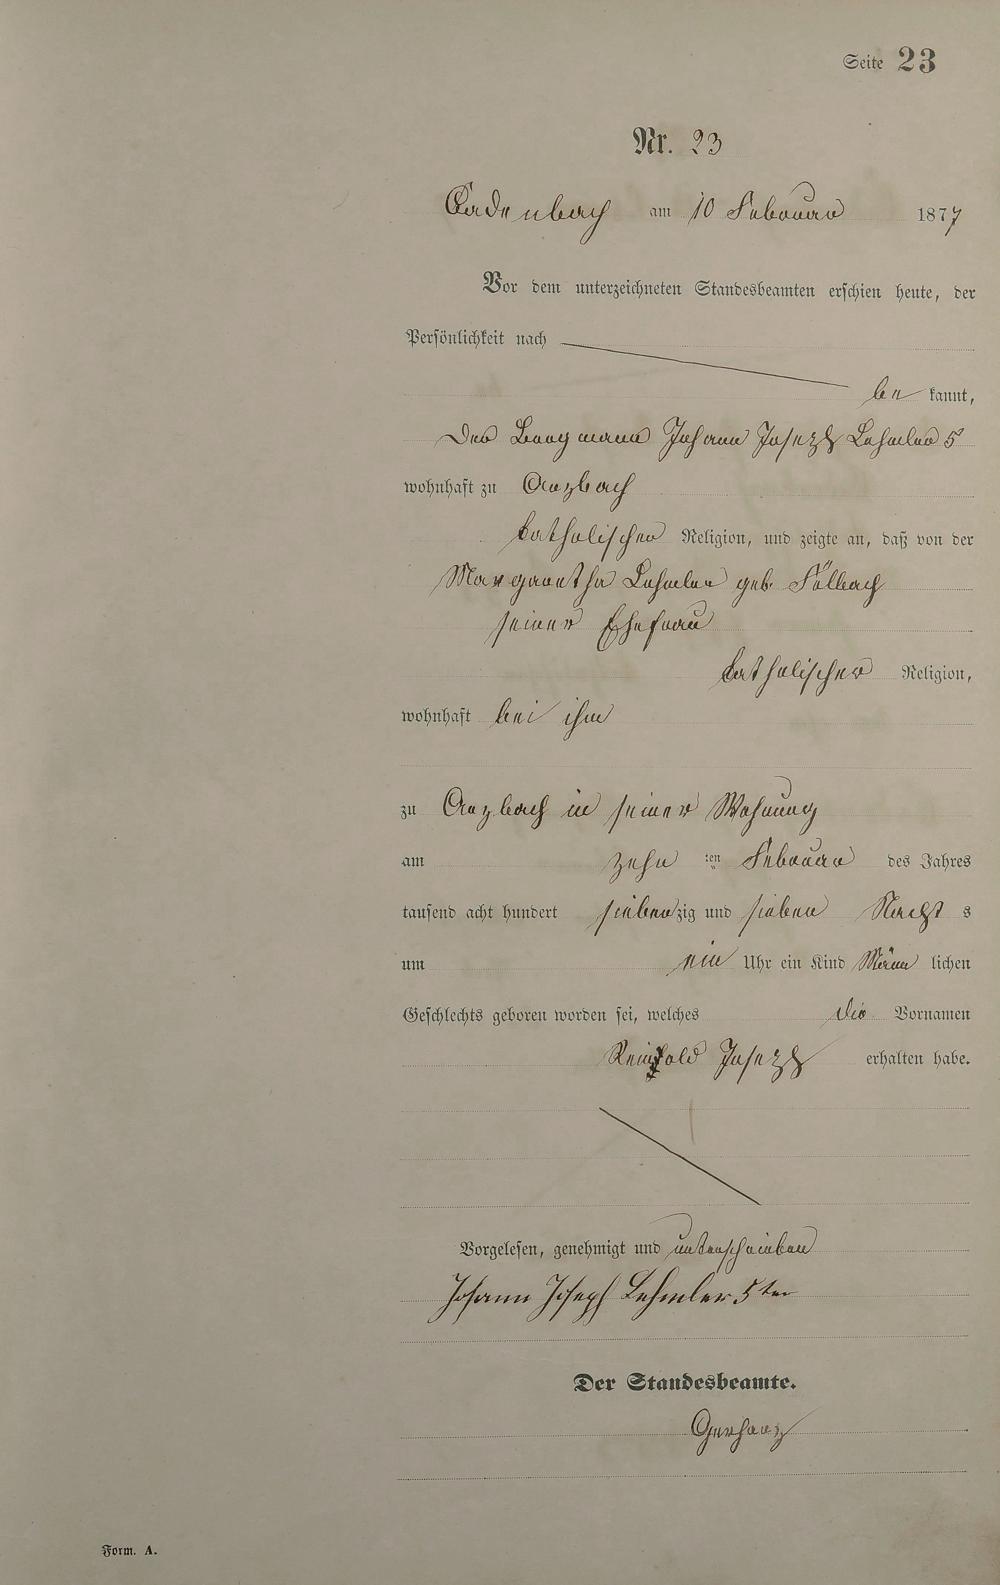 Seite 23
Nr. 23
Cadenbach am 10 Februar 1877
Vor dem unterzeichneten Standesbeamten erschien heute, der
Persönlichkeit nach
be kannt,
Der Bergmann Johann Joseph Lehmler 5
wohnhaft zu Arzbach
katholischer Religion, und zeigte an, daß von der
Margaretha Lehmler geb.
seiner Ehefrau
katholischer Religion,
wohnhaft bei ihm
zu Arzbach in seiner Wohnung
am zehn ten Februar des Jahres
tausend acht hundert siebenzig und sieben Nachts
um ein Uhr ein Kind Männ lichen
Geschlechts geboren worden sei, welches die Vornamen
Reinhold Joseph erhalten habe.
Vorgelesen, genehmigt und unterschrieben
Johann Joseph Lehmler 5ter
Der Standesbeamte.
Gerharz
Form. A.